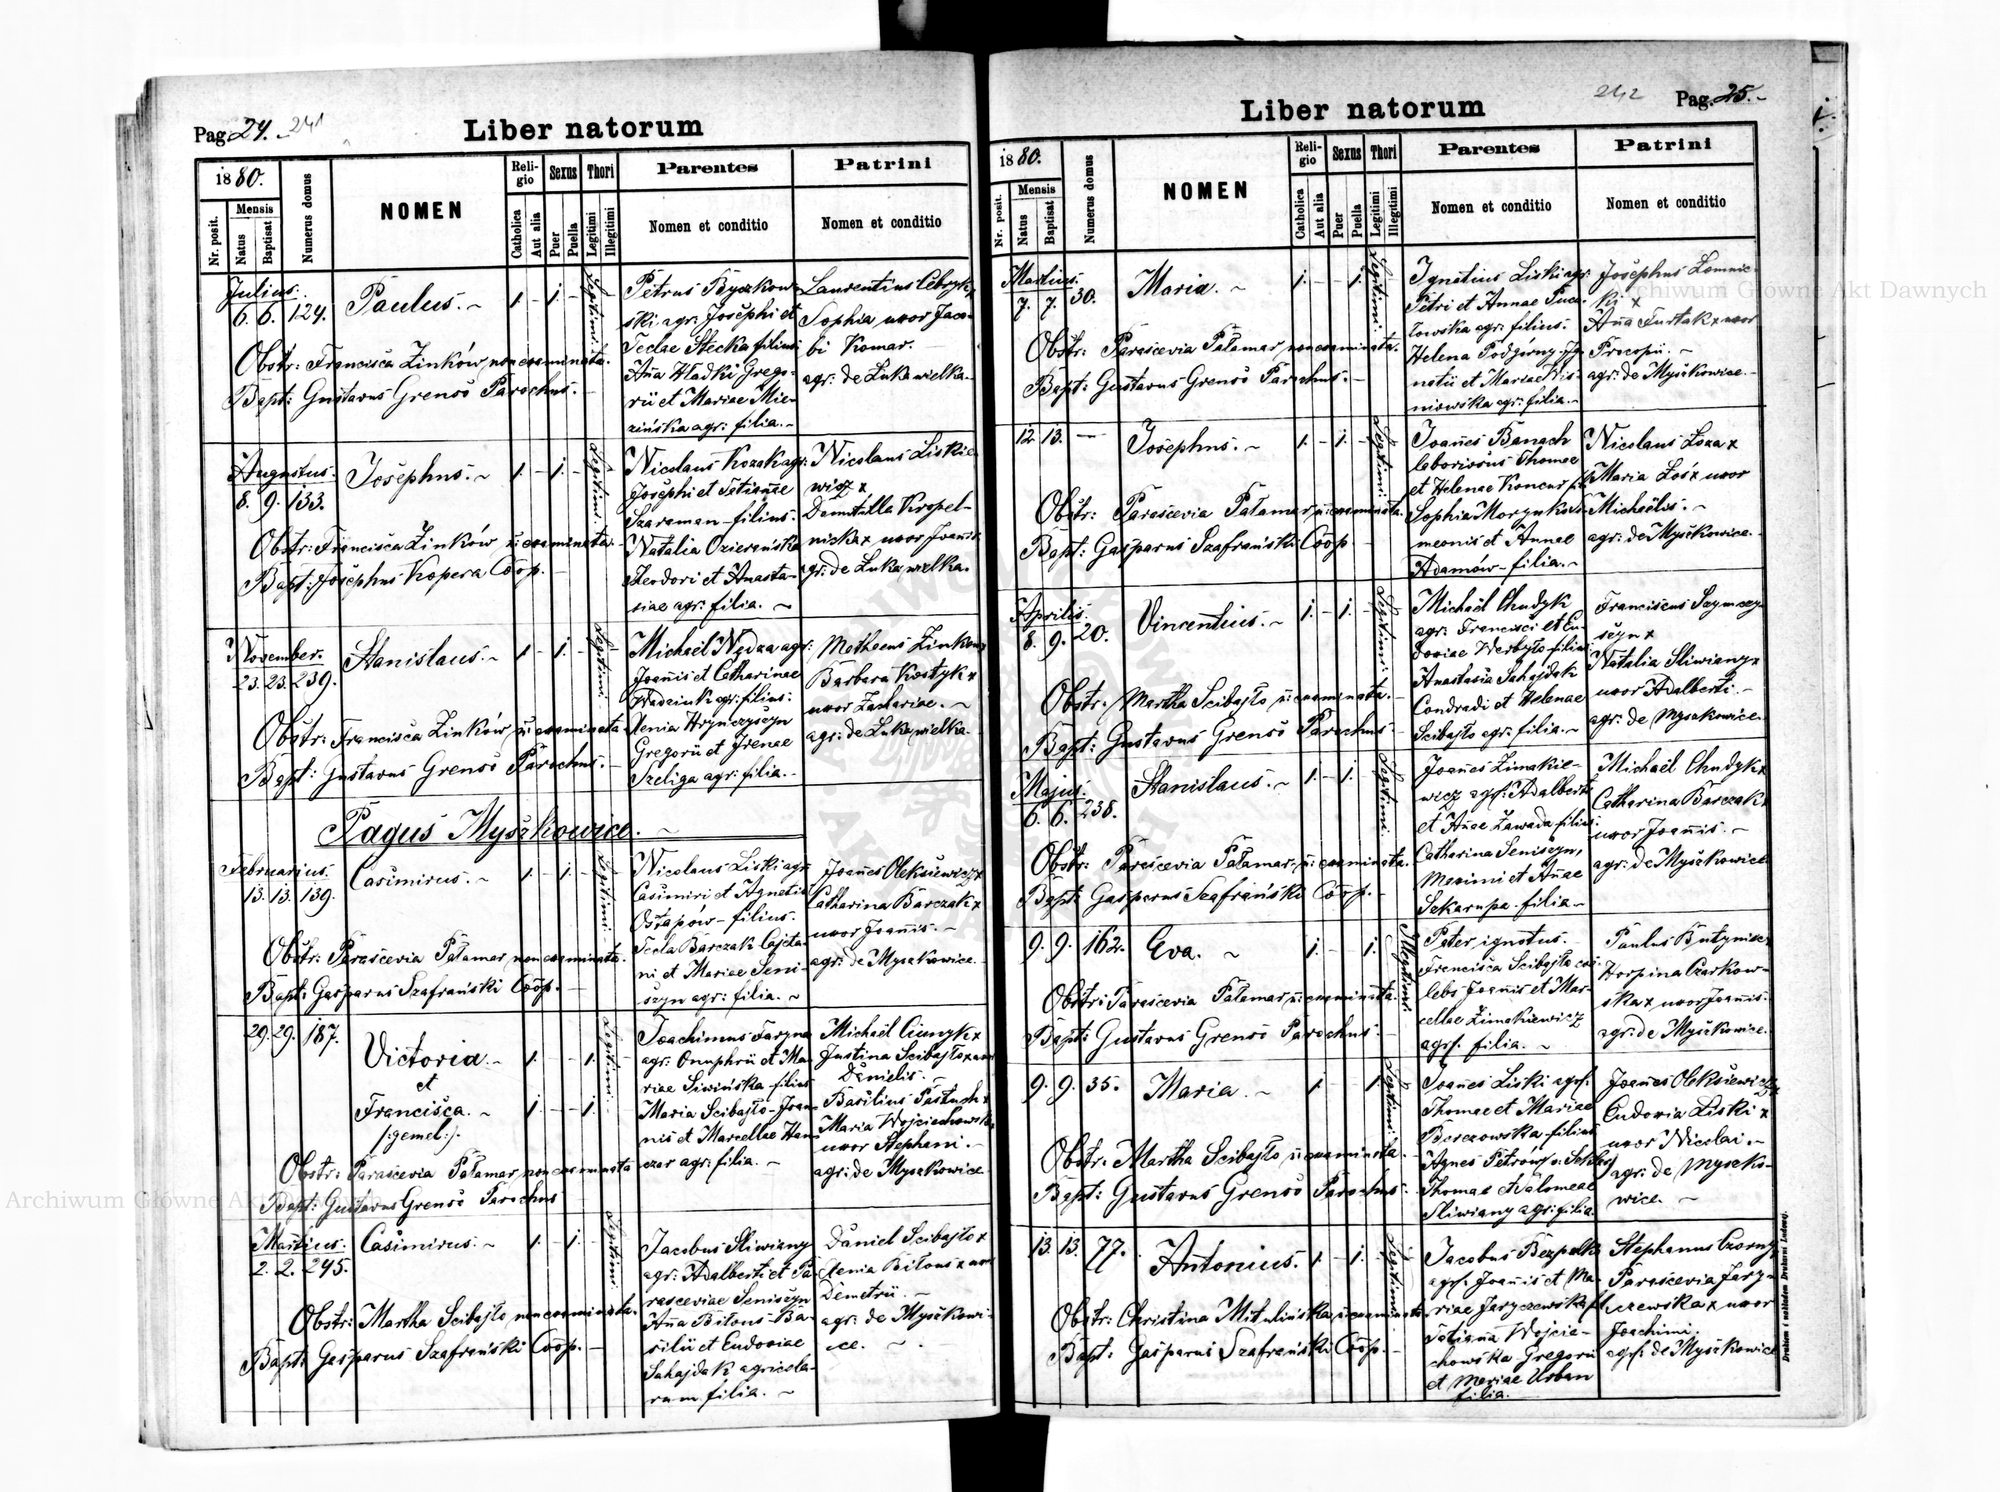 Pag. 24. 241
Liber natorum
1880.
Nr. posit.
Mensis
Natus
Baptisat
Numerus domus
NOMEN
Religio
Catholica
Aut alia
Sexus
Puer
Puella
Thori
Legitimi
Illegitimi
Parentes
Nomen et conditio
Patrini
Nomen et conditio
Julius.
6. 6. 124.
Paulus. ~
1. - 1. -
Legitimi.
Petrus Byczkow-
ski agr: Josephi et
Teclae Stecka filius
Anna Hladki Grego-
rii et Mariae Mie-
zińska agr: filia. ~
Laurentius Cebryk x
Sophia uxor Jaco-
bi Komar.
agr: de Łuka wielka.
Obstr: Francisca Zinków non examinata.
Bapt: Gustavus Grensö Parochus. -
Augustus.
8. 9. 133.
Josephus. ~
1. - 1. -
Legitimi.
Nicolaus Kozak agr:
Josephi et Tetiannae
Szaraman - filius.
Natalia Ozierańska
Teodori et Anasta-
siae agr: filia. ~
Nicolaus Liskie-
wicz x
Domitilla Kropel-
nicka x uxor Joannis
agr: de Łuka wielka.
Obstr: Francisca Zinków n: examinata.
Bapt: Josephus Kopera Coop.
November.
23. 23. 239.
Stanislaus. ~
1. - 1. -
Legitimi
Michaël Nędza agr:
Joannis et Catharinae
agr: filius.
Xenia Hrynczyszyn
Gregorii et Irenae
Szeliga agr: filia. -
Matheus Zinków x
Barbara Kostyk x
uxor Zachariae. ~
agr: de Łuka wielka.
Obstr: Francisca Zinków n: examinata
Bapt: Gustavus Grensö Parochus. -
Pagus Myszkowice. ~
Februarius.
13. 13. 139.
Casimirus. ~
1. - 1. -
Legitimi
Nicolaus Liski agr:
Casimiri et Agnetis
Ostapów - filius.
Tecla Barczak Cajeta-
ni et Mariae Seni-
szyn agr: filia. ~
Joannes Oleksiewicz x
Catharina Barczak x
uxor Joannis. -
agr: de Myszkowice.
Obstr: Parascevia Pałamar, non examinata.
Bapt: Gasparus Szafrański Coop. -
29. 29. 187.
Victoria. ~
et
Francisca. ~
/:gemel:/.
1. - - 1.
1. - - 1.
Legitimi
Joachimus Jaryna
agr: Onuphrii et Ma-
riae Siwińska filius
Maria Scibajło - Joan-
nis et Marcellae Han-
czar agr: filia. ~
Michaël x
Justina Scibajło x uxor
Danielis.
Basilius Pastuch x
Maria Wojciechowska
uxor Stephani. -
agr: de Myszkowice
Obstr: Parascevia Pałamar, non examinata
Bapt: Gustavus Grensö Parochus
Martius.
2. 2. 245.
Casimirus. ~
1. - 1. -
Legitimi
Jacobus Sliwiany
agr: Adalberti et Pa-
rasceviae Seniszyn
Anna Biłous - Ba-
silii et Eudoxiae
Sahajdak agricola-
rum filia. ~
Daniel Scibajło x
Xenia Biłous x uxor
Demetrii. -
agr: de Myszkowi-
ce. ~
Obstr: Martha Scibajło non examinata.
Bapt: Gasparus Szafrański Coop. -
242 Pag. 25. -
Liber natorum
1880.
Nr. posit.
Mensis
Natus
Baptisat
Numerus domus
NOMEN
Religio
Catholica
Aut alia
Sexus
Puer
Puella
Thori
Legitimi
Illegitimi
Parentes
Nomen et conditio
Patrini
Nomen et conditio
Martius.
7. 7. 30.
Maria. ~
1. - - 1.
Legitimi
Ignatius Liski agr:
Petri et Annae
agr: filius.
Helena Podgórny Ig-
natii et Mariae Wis-
niowska agr: filia. ~
Josephus Łomnic-
ki x
Anna Furtak x uxor
Procopii. ~
agr: de Myszkowice. -
Obstr: Parascevia Pałamar non examinata.
Bapt: Gustavus Grensö Parochus. -
12. 13. —
Josephus. ~
1. - 1. -
Legitimi
Joannes Banach
laboriosus Thomae
et Helenae
Sophia
meonis et Annae
Adamów - filia. ~
Nicolaus Łoza x
Maria Łoś x uxor
Michaëlis. ~
agr: de Myszkowice. -
Obstr: Parascevia Pałamar n: examinata.
Bapt: Gasparus Szafrański Coop
Aprilis.
8. 9. 20.
Vincentius. ~
1. - 1. -
Legitimi
Michaël Chudyk
agr: Francisci et Eu-
doxiae Werbyło filius
Anastasia Sahajdak
Condradi et Helenae
Scibajło agr: filia. ~
Franciscus Szymczy-
szyn x
Natalia Sliwiany x
uxor Adalberti. -
agr: de Myszkowice.
Obstr: Martha Scibajło n: examinata. -
Bapt: Gustavus Grensö Parochus. -
Majus.
6. 6. 238.
Stanislaus. ~
1. - 1. -
Legitimi
Joannes Zimakie-
wicz agr: Adalberti
et Annae Zawada filius.
Catharina Seniszyn,
Maximi et Annae
Szkarupa filia ~
Michaël Chudyk x
Catharina Barczak x
uxor Joannis. ~
agr: de Myszkowice
Obstr: Parascevia Pałamar, n: examinata.
Bapt: Gasparus Szafrański Coop. -
9. 9. 162.
Eva. ~
1. - - 1.
Illegitimi
Pater ignotus.
Francisca Scibajło coe-
lebs Joannis et Mar-
cellae Zimakiewicz
agr. filia. ~
Paulus x
Horpina Czarkow-
ska x uxor Joannis.
agr: de Myszkowice.
Obstr: Parascevia Pałamar, n: examinata.
Bapt: Gustavus Grensö Parochus. -
9. 9. 35.
Maria. ~
1. - - 1.
Legitimi
Joannes Liski agr.
Thomae et Mariae
Berezowska filius
Agnes Petrów
Thomae et Salomeae
Sliwiany agr: filia
Joannes Oleksiewicz x
Eudoxia Liski x
uxor Nicolai. ~
agr: de Myszko-
wice. ~
Obstr: Martha Scibajło n: examinata.
Bapt: Gustavus Grensö Parochus. -
13. 13. 77.
Antonius. -
1. - 1. -
Legitimi
Jacobus Bezpalk
agr. Joannis et Ma-
riae Jaryczewska fil.
Tatianna Wojcie-
chowska Gregorii
et Mariae Urban
filia.
Stephanus Czorny x
Parascevia Jary-
czewska x uxor
Joachimi.
agr. de Myszkowice
Obstr: Christina Mitulińska n: examinata.
Bapt: Gasparus Szafrański Coop. -
Drukiem i nakładem Drukarni Ludowej.
Archiwum Główne Akt Dawnych
Archiwum Główne Akt Dawnych